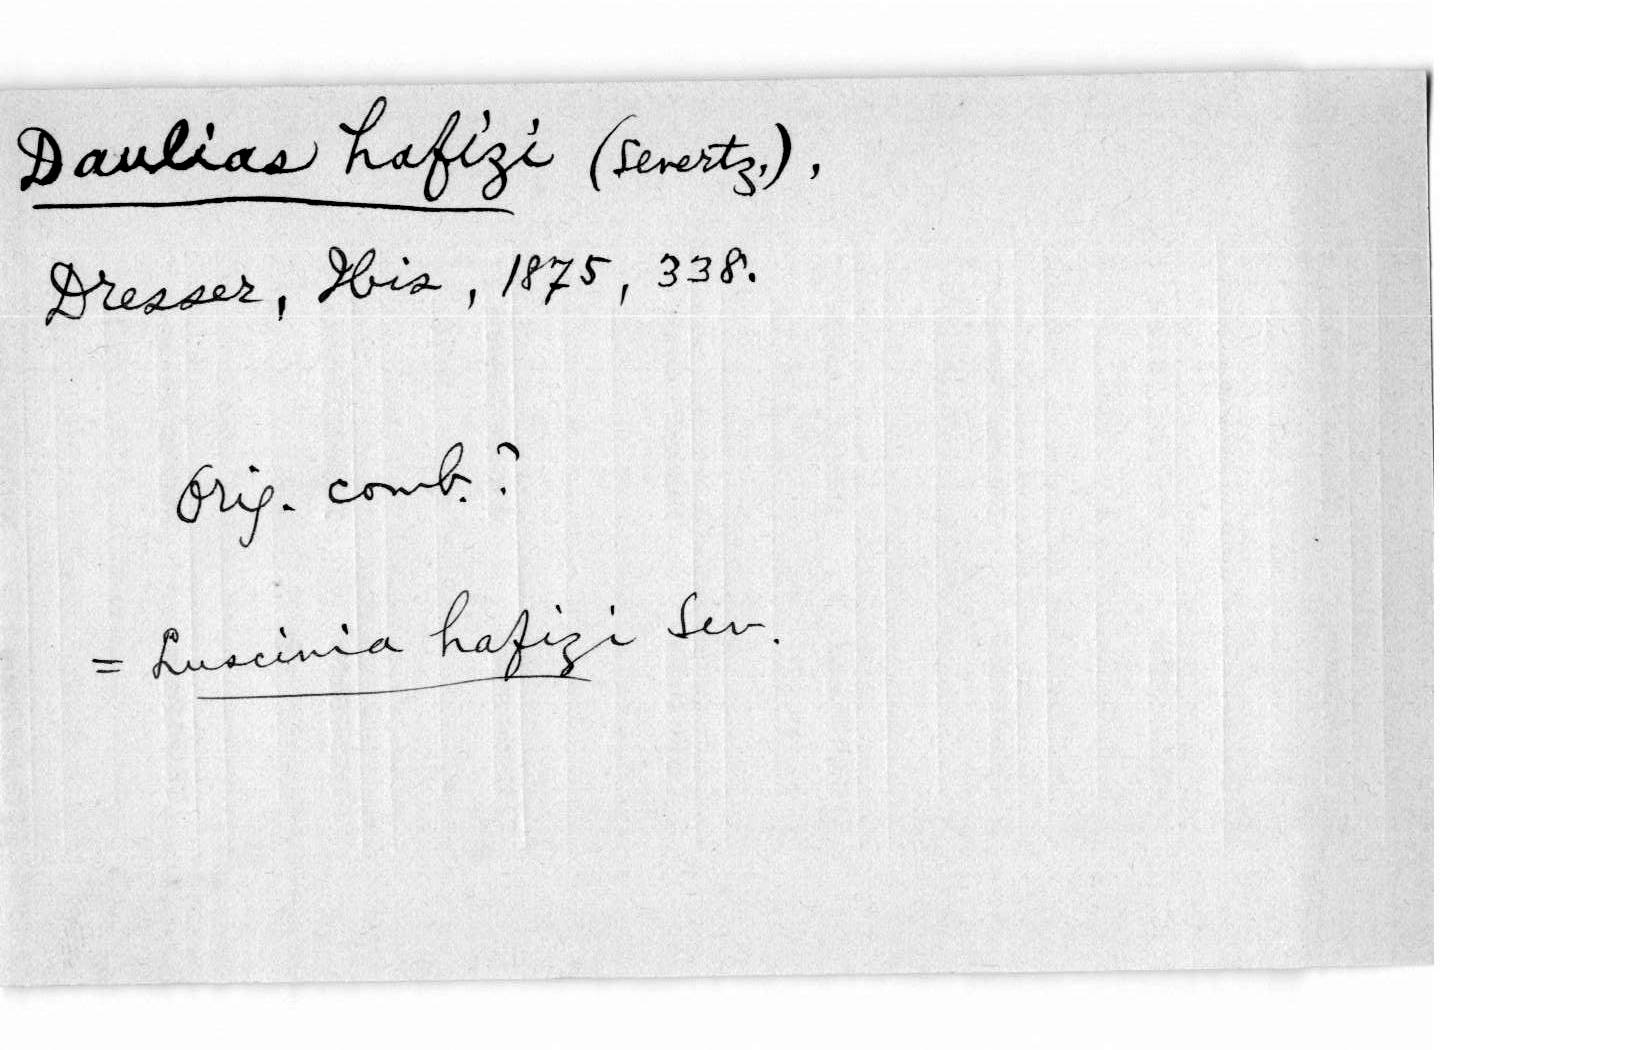 Daulias hafizi (Severtz.),
Dresser, Ibis, 1875, 338.
Orig. comb.?
= Luscinia hafizi Sev.